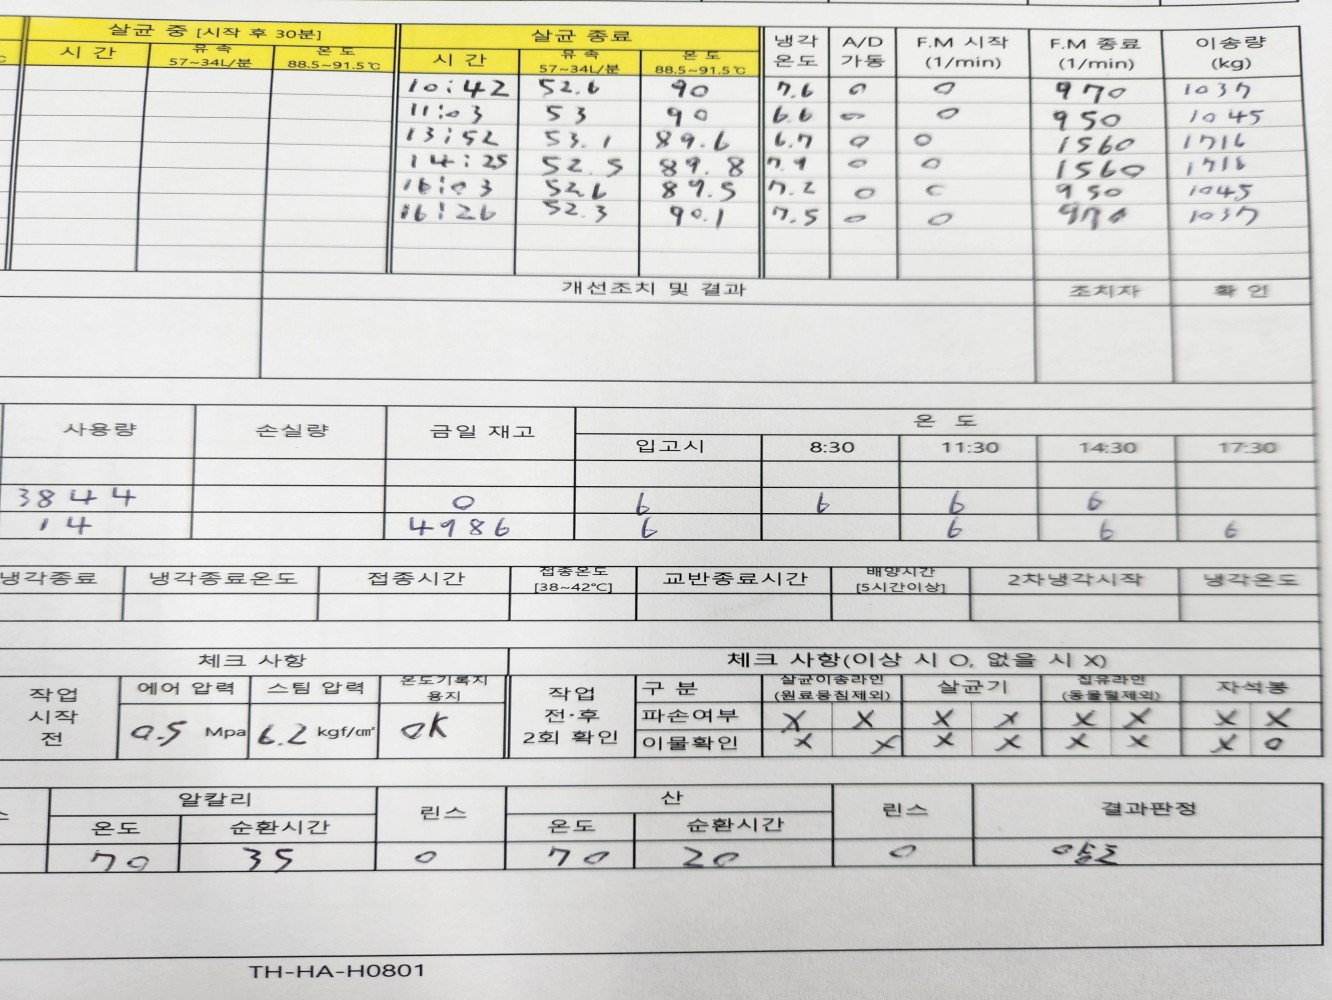 살균 중 [시작 후 30분] 살균 종료 냉각 온도 A/D 가동 F.M 시작 (1/min) F.M 종료 (1/min) 이송량 (kg)
℃ 시 간 유 속 57~34L/분 온 도 88.5~91.5℃ 시 간 유 속 57~34L/분 온 도 88.5~91.5℃
10:42 52.6 90 7.6 0 0 970 1037
11:03 53 90 6.6 0 0 950 1045
13:52 53.1 89.6 6.7 0 0 1560 1716
14:25 52.5 89.8 7.9 0 0 1560 1716
16:03 52.6 89.5 7.2 0 0 950 1045
16:26 52.3 90.1 7.5 0 0 970 1037
개선조치 및 결과 조치자 확 인
사용량 손실량 금일 재고 온 도
입고시 8:30 11:30 14:30 17:30
3844 0 6 6 6 6
14 4986 6 6 6 6
냉각종료 냉각종료온도 접종시간 접종온도 [38~42℃] 교반종료시간 배양시간 [5시간이상] 2차냉각시작 냉각온도
체크 사항 체크 사항(이상 시 O, 없을 시 X)
작업 시작 전 에어 압력 스팀 압력 온도기록지 용지 작업 전·후 2회 확인 구 분 살균이송라인 (원료뭉침제외) 살균기 집유라인 (동물털제외) 자석봉
0.5 Mpa 6.2 kgf/㎠ OK 파손여부 X X X X X X X X
이물확인 X X X X X X X O
스 알칼리 린스 산 린스 결과판정
온도 순환시간 온도 순환시간
70 35 0 70 20 0 양호
TH-HA-H0801